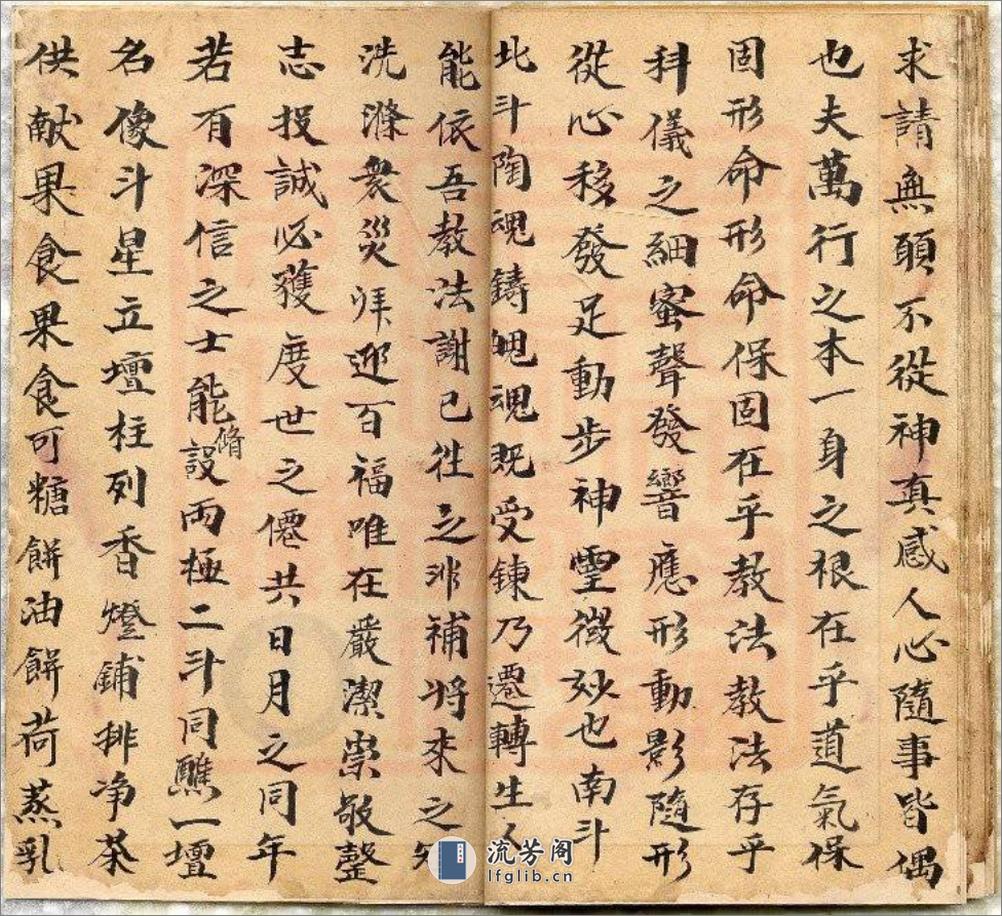 求請無願不從神真感人心隨事皆偶
也夫萬行之本一身之根在乎道氣保
固形命形命保固在乎教法教法存乎
科儀之細蜜聲發響應形動影隨形
從心移發足動步神靈微妙也南斗
北斗陶魂鑄魄魂既受鍊乃遷轉生人
能依吾教法謝已往之非補將來之
洗滌衆災拜迎百福唯在嚴潔崇敬
志投誠必獲度世之僊共日月之同年
若有深信之士能脩設兩極二斗同醮一壇
名像斗星立壇柱列香燈鋪排净茶
供献果食果食可糖餅油餅荷蒸乳
流芳阁
lfglib.cn